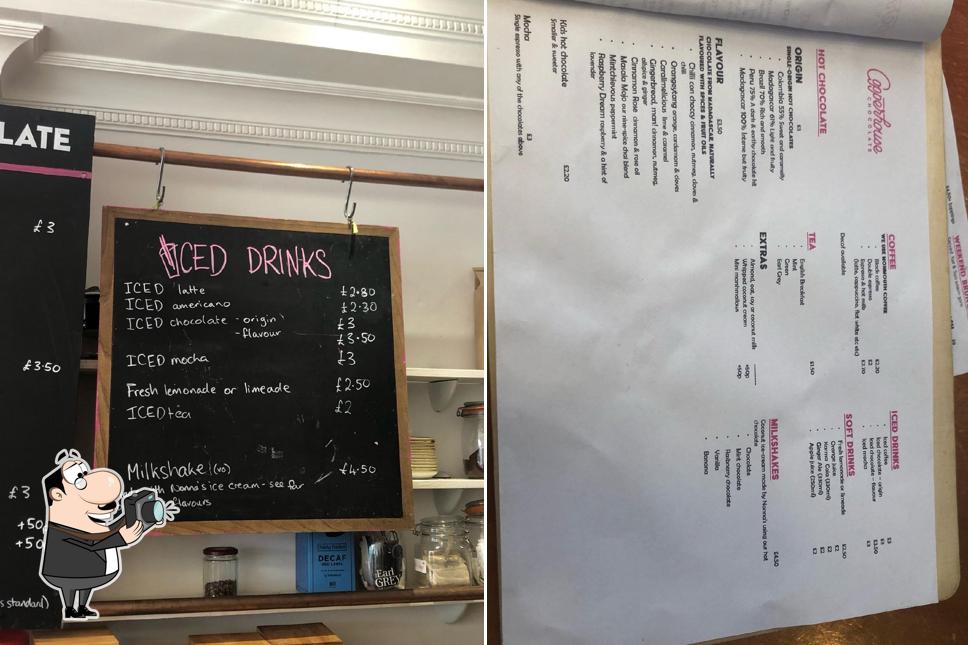 LATE
£3
£3.50
£3
+50
+50
s standard)
ICED DRINKS
ICED latte £2.80
ICED americano £2.30
ICED chocolate - origin £3
- flavour £3.50
ICED mocha £3
Fresh lemonade or limeade £2.50
ICED tea £2
Milkshake (vo) £4.50
Nonna's ice cream - see for
flavours
DECAF
Earl
GREY
Copperhouse
CHOCOLATE
HOT CHOCOLATE
ORIGIN £3
SINGLE-ORIGIN HOT CHOCOLATES
Colombia 55% Sweet and caramelly
Madagascar 61% Light and fruity
Brazil 70% Rich and smooth
Peru 75% A dark & earthy chocolate hit
Madagascar 100% Intense but fruity
FLAVOUR £3.50
CHOCOLATE FROM MADAGASCAR, NATURALLY
FLAVOURED WITH SPICES & FRUIT OILS
Chilli con choccy cinnamon, nutmeg, cloves &
chilli
Orangeytang orange, cardamom & cloves
Caralimelicious lime & caramel
Gingerbread, man! cinnamon, nutmeg,
allspice & ginger
Cinnamon Rose cinnamon & rose oil
Masala Mojo our nine-spice chai blend
Mintchievous peppermint
Raspberry Dream raspberry & a hint of
lavender
Kids hot chocolate £2.20
Smaller & sweeter
Mocha £3
Single espresso with any of the chocolates above
COFFEE
WE USE MONMOUTH COFFEE
Black coffee £2.20
Double espresso £2
Espresso & hot milk £2.70
(latte, cappuccino, flat white etc etc)
Decaf available
TEA £1.50
English Breakfast
Mint
Green
Earl Grey
EXTRAS
Almond, oat, soy or coconut milk
Whipped coconut cream +60p
Mini marshmallows +50p
ICED DRINKS
Iced coffee £3
Iced chocolate – origin £3
Iced chocolate – flavour £3.50
Iced mocha £3
SOFT DRINKS
Fresh lemonade or limeade £2.50
Orange juice £2
Karma Cola (330ml) £2
Ginger Ale (330ml) £2
Apple juice (250ml) £2
MILKSHAKES £4.50
Coconut ice-cream made by Nonna's using our hot
chocolate
Chocolate
Mint chocolate
Raspberry chocolate
Vanilla
Banana